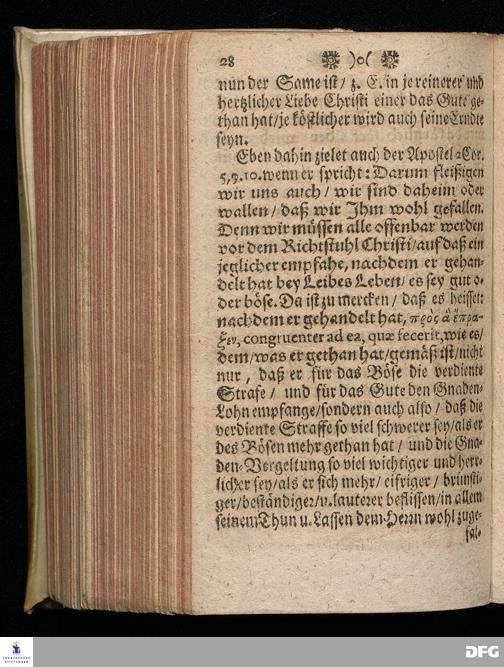 28 )o(
nun der Same ist/ z. E. in je reinerer und
hertzlicher Liebe Christi einer das Gute ge-
than hat/ je köstlicher wird auch seine Erndte
seyn.
Eben dahin zielet auch der Apostel 2 Cor.
5, 9. 10. wenn er spricht: Darum fleißigen
wir uns auch/ wir sind daheim oder
wallen/ daß wir Ihm wohl gefallen.
Denn wir müssen alle offenbar werden
vor dem Richtstuhl Christi/ auf daß ein
jeglicher empfahe, nachdem er gehan-
delt hat bey Leibes Leben/ es sey gut o-
der böse. Da ist zu mercken/ daß es heisset:
nachdem er gehandelt hat, πρὸς ἃ ἔπρα-
ξεν, congruenter ad ea, quæ fecerit, wie es/
dem/ was er gethan hat/ gemäß ist/ nicht
nur, daß er für das Böse die verdiente
Strafe/ und für das Gute den Gnaden-
Lohn empfange/ sondern auch also/ daß die
verdiente Straffe so viel schwerer sey/ als er
des Bösen mehr gethan hat/ und die Gna-
den-Vergeltung so viel wichtiger und herr-
licher sey/ als er sich mehr/ eifriger/ brünsti-
ger/ beständiger/ u. lauterer beflissen/ in allem
seinem Thun u. Lassen dem Herrn wohl zuge-
fal-
FRANCKESCHE
STIFTUNGEN
DFG